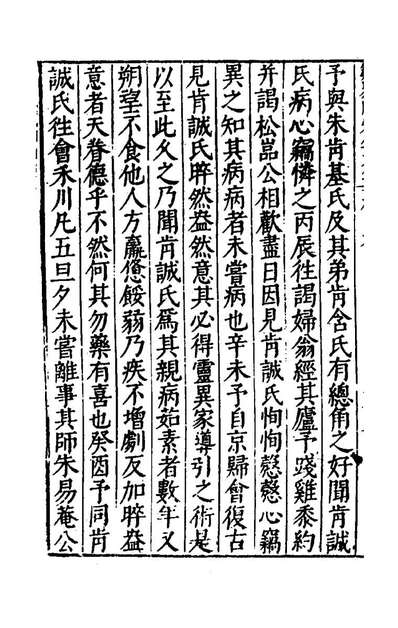 予與朱肯基氏及其弟肯含氏有總角之好聞肯誠
氏病心竊憐之丙辰徃謁婦翁經其廬予踐雞黍約
并謁松嵓公相歡盡日因見肯誠氏恂恂慤慤心竊
異之知其病病者未嘗病也辛未予自京歸會復古
見肯誠氏睟然盎然意其必得靈異家導引之術是
以至此久之乃聞肯誠氏爲其親病茹素者數年又
朔望不食他人方羸憊餒弱乃疾不增劇反加睟盎
意者天眷德乎不然何其勿藥有喜也癸酉予同肯
誠氏徃會禾川凡五旦夕未嘗離事其師朱易菴公